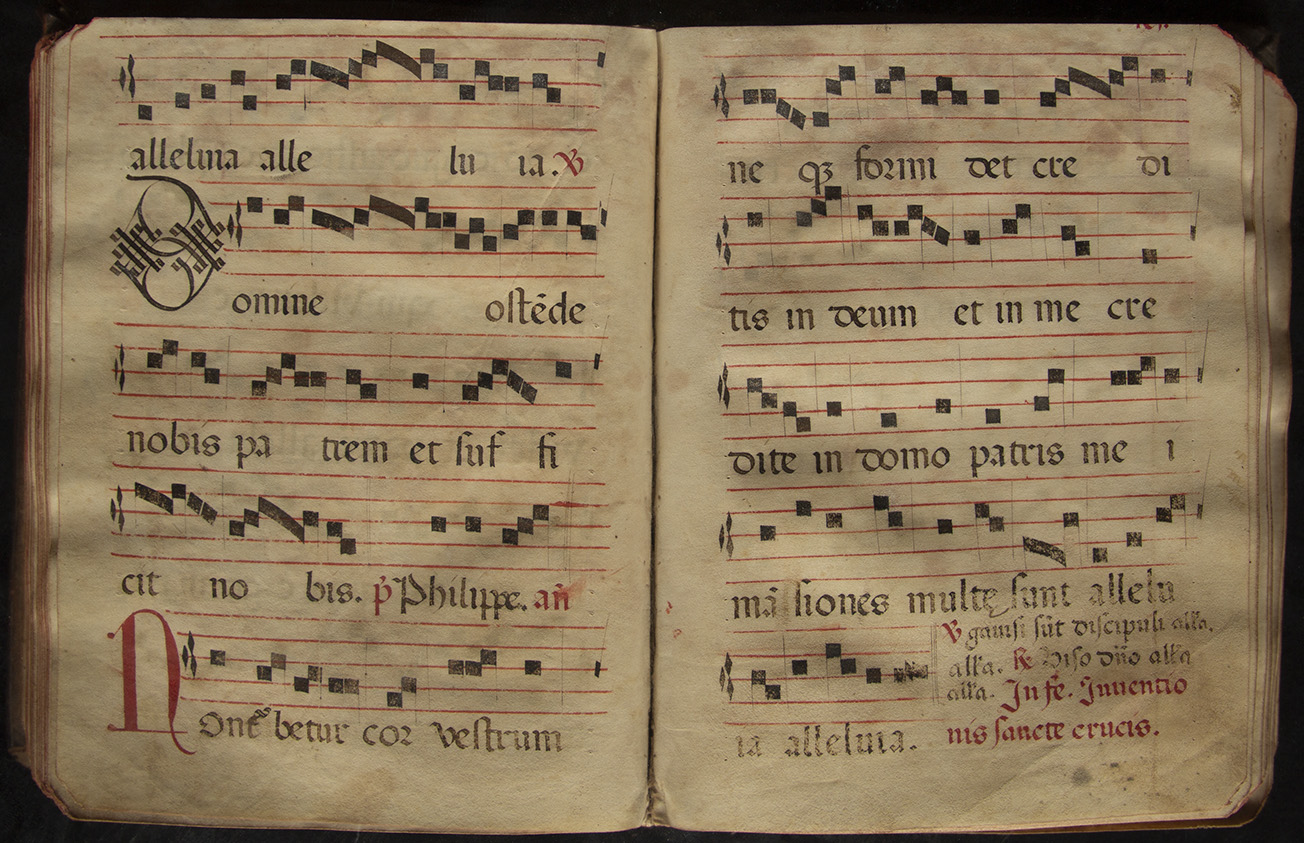 alleluia alle lu ia. ℣
Domine ostēde
nobis pa trem et suf fi
cit no bis. p̄ Philippe. añ
Non t betur cor vestrum
ne qꝫ formi det cre di
tis in deum et in me cre
dite in domo patris me i
mā siones multę sunt allelu
℣ gauisi sūt discipuli all'a.
all'a. ℟ viso dño all'a
all'a. In fe. Inuentio
ia alleluia. nis sancte crucis.